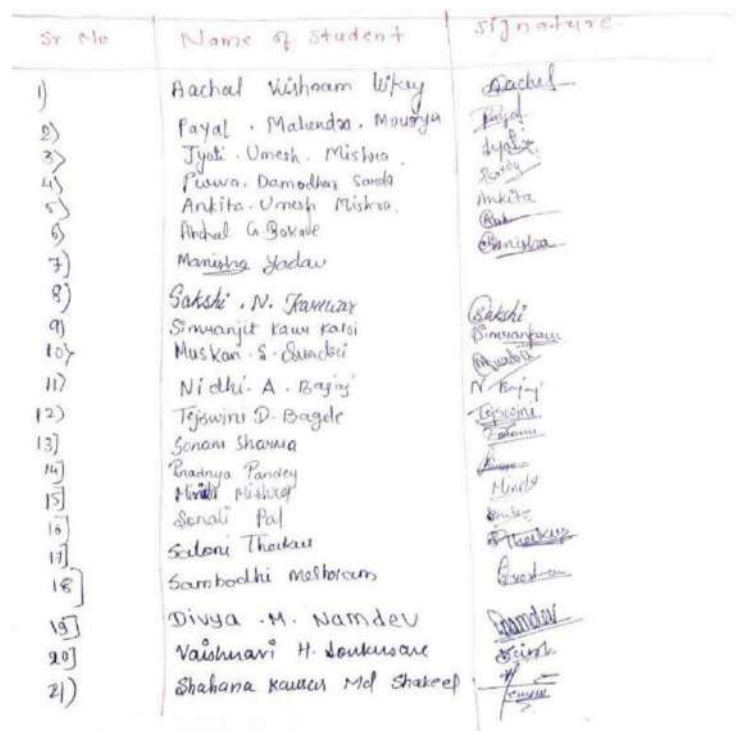 Sr No Name of Student Signature
1) Aachal Vishram Uikey Aachal
2) Payal . Mahendra . Mourya Payal
3) Jyoti . Umesh . Mishra Jyoti
4) Purva . Damodhar Sarda
5) Ankita . Umesh Mishra. Ankita
6) Anchal G. Bokade
7) Manisha Yadav Manisha
8) Sakshi . N. Sakshi
9) Simranjit Kaur Kalsi Simrankaur
10) Muskan . S.
11) Nidhi . A . Bajaj N Bajaj
12) Tejswini D. Bagde Tejswini
13] Sonam Sharma
14] Pradnya Pandey
15] Mishra Mindy
16] Sonali Pal
17] Saloni Thorkar
18] Sambodhi Meshram
19] Divya . M. Namdev Namdev
20] Vaishnavi H. Sonkusare
21) Shahana Kausar Md Shakeel